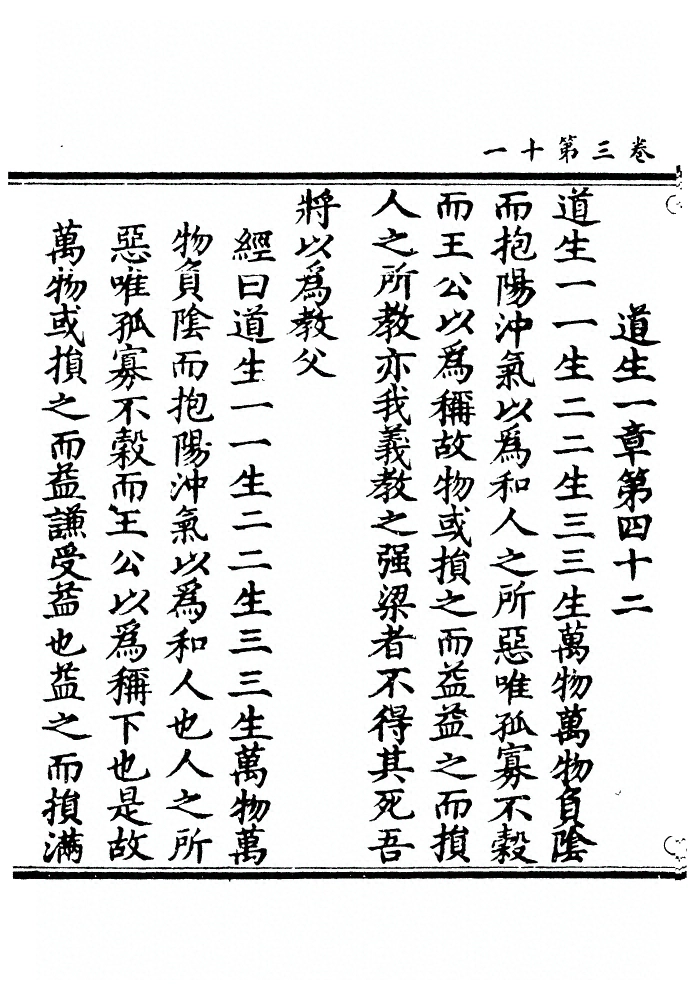 卷三第十一
道生一章第四十二
道生一一生二二生三三生萬物萬物負陰
而抱陽沖氣以爲和人之所惡唯孤寡不穀
而王公以爲稱故物或損之而益益之而損
人之所教亦我義教之强梁者不得其死吾
將以爲教父
經曰道生一一生二二生三三生萬物萬
物負陰而抱陽沖氣以爲和人也人之所
惡唯孤寡不穀而王公以爲稱下也是故
萬物或損之而益謙受益也益之而損滿